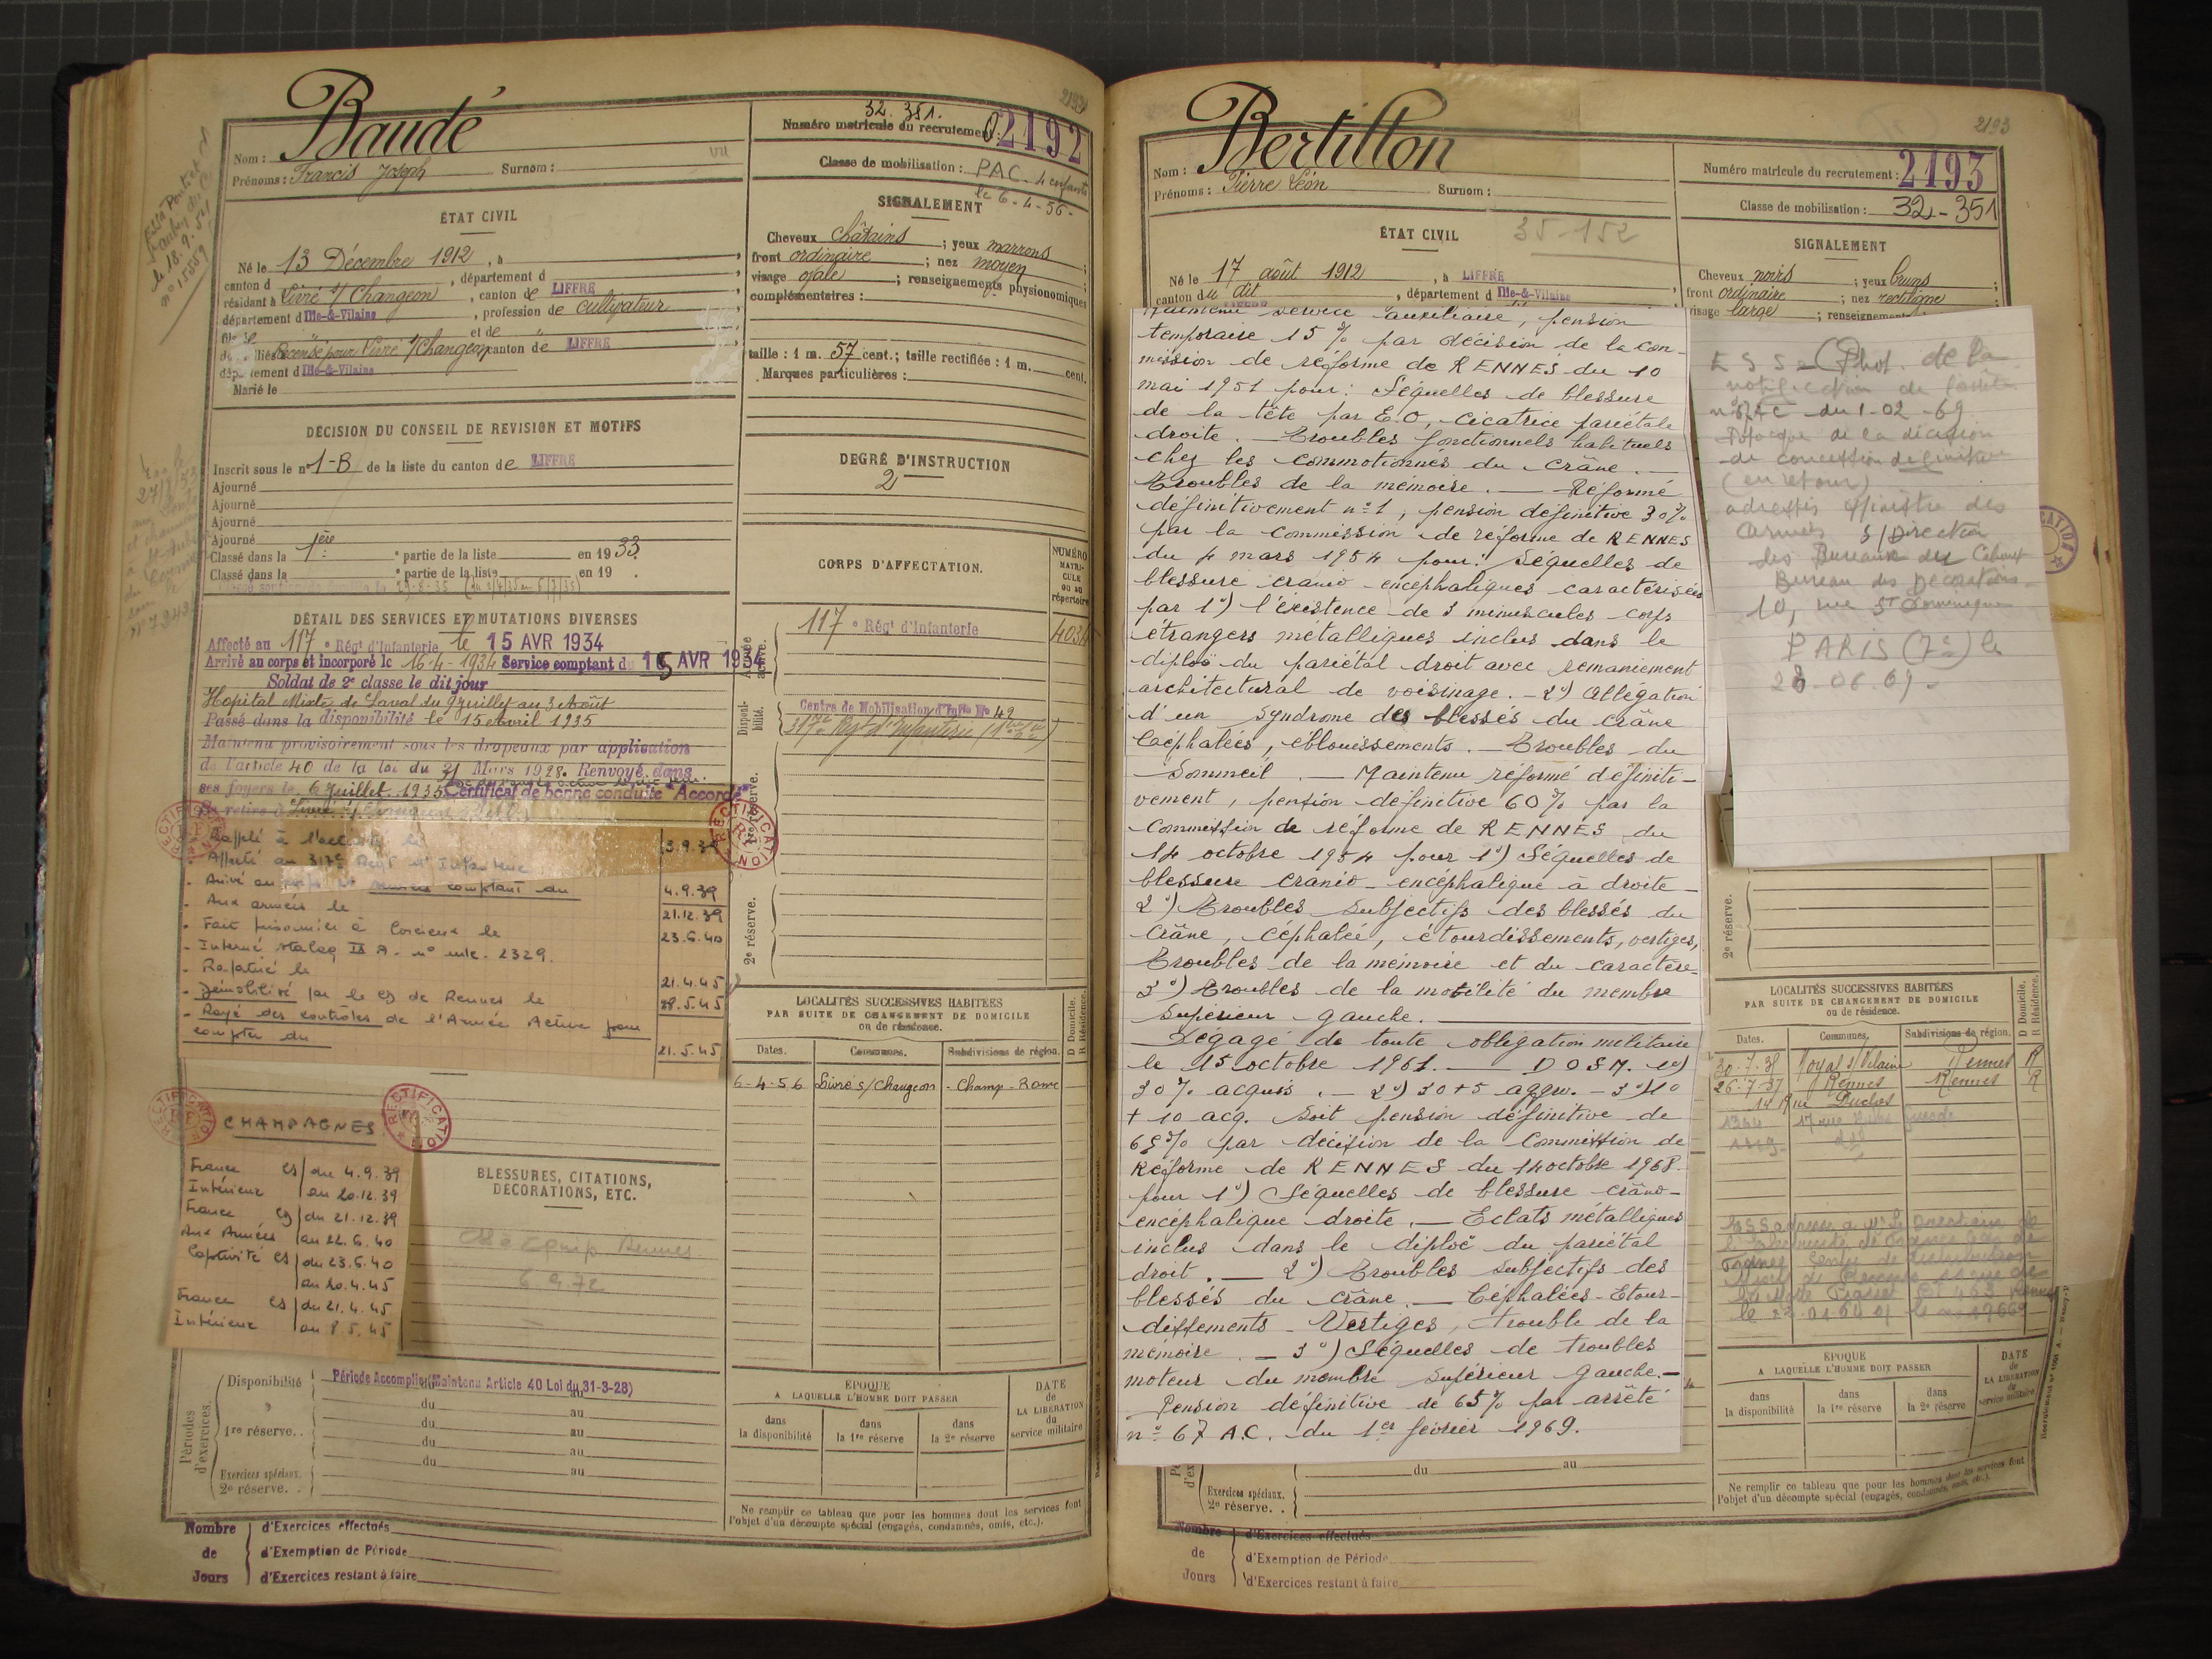 Baudé
Nom :
Prénoms : Francis Joseph Surnom :
vu
32.351.
Numéro matricule du recrutement : 02192
Classe de mobilisation : PAC - 4 enfants
le 6-4-56-
ÉTAT CIVIL
Né le 13 Décembre 1912, à
canton d , département d
résidant à Livré s/ Changeon, canton de LIFFRE
département d Ille-&-Vilaine, profession de cultivateur
et de
Recensé pour Livré s/Changeon canton de LIFFRE
département d Ille-&-Vilaine
Marié le
SIGNALEMENT
Cheveux châtains ; yeux marrons
front ordinaire ; nez moyen
visage ovale ; renseignements physionomiques
complémentaires :
taille : 1 m. 57 cent.; taille rectifiée : 1 m. cent.
Marques particulières :
DÉCISION DU CONSEIL DE REVISION ET MOTIFS
Inscrit sous le n° 1-B de la liste du canton de LIFFRE
Ajourné
Ajourné
Ajourné
Ajourné
Classé dans la 1ère partie de la liste en 1933.
Classé dans la e partie de la liste en 19 .
DEGRÉ D'INSTRUCTION
2
DÉTAIL DES SERVICES ET MUTATIONS DIVERSES
Affecté au 117e Régt d'Infanterie le 15 AVR 1934
Arrivé au corps et incorporé le 16-4-1934 Service comptant du 15 AVR 1934
Soldat de 2e classe le dit jour
Hopital Mixte de Laval du 9 juillet au 3 Août
Passé dans la disponibilité le 15 avril 1935
Maintenu provisoirement sous les drapeaux par application
de l'article 40 de la loi du 31 Mars 1928. Renvoyé dans
ses foyers le 6 Juillet 1935 Certificat de bonne conduite "Accordé"
Rappelé à l'activité le 3.9.39
- Affecté au 317e Régt d'Infanterie
- Arrivé au corps et services comptant du 4.9.39
- Aux armées le 21.12.39
- Fait prisonnier à Corcieux le 23.6.40
- Interné stalag IX A. n° mle. 2329.
- Rapatrié le 21.4.45
- Démobilisé par le CD de Rennes le 28.5.45
- Rayé des contrôles de l'Armée Active pour
compter du 21.5.45
CORPS D'AFFECTATION.
NUMÉRO MATRICULE ou au répertoire
Armée active.
117e Régt d'Infanterie 4034
Disponibilité.
Centre de Mobilisation d'Inf° N° 49
317e Régt d'Infanterie
1re réserve.
2e réserve.
RECTIFICATION
CHAMPAGNES
France CS du 4.9.39
Intérieur au 20.12.39
France CG du 21.12.39
Aux Armées au 22.6.40
Captivité CS du 23.6.40
au 20.4.45
France CS du 21.4.45
Intérieur au 8.5.45
BLESSURES, CITATIONS,
DÉCORATIONS, ETC.
6.9.72
LOCALITÉS SUCCESSIVES HABITÉES
PAR SUITE DE CHANGEMENT DE DOMICILE
ou de résidence.
D Domicile.
R Résidence.
Dates. Communes. Subdivisions de région.
6-4-56 Livré s/Changeon - Champ-Rome
Périodes d'exercices.
Disponibilité Période Accomplie (Maintenu Article 40 Loi du 31-3-28)
1re réserve. . du au
du au
du au
du au
Exercices spéciaux.
2e réserve. . du au
ÉPOQUE
A LAQUELLE L'HOMME DOIT PASSER
dans la disponibilité
dans la 1re réserve
dans la 2e réserve
DATE de LA LIBÉRATION du service militaire
Ne remplir ce tableau que pour les hommes dont les services font
l'objet d'un décompte spécial (engagés, condamnés, omis, etc.).
Nombre d'Exercices effectués
de d'Exemption de Période
Jours d'Exercices restant à faire
2193
Bertillon
Nom :
Prénoms : Pierre Léon Surnom :
Numéro matricule du recrutement : 2193
Classe de mobilisation : 32-351
ÉTAT CIVIL 35-152
Né le 17 août 1912, à LIFFRE
canton du dit, département d Ille-&-Vilaine
SIGNALEMENT
Cheveux noirs ; yeux bruns
front ordinaire ; nez rectiligne
visage large ; renseignements
service auxiliaire, pension
temporaire 15 % par décision de la com-
mission de réforme de RENNES du 10
mai 1951 pour : Séquelles de blessure
de la tête par E.O, cicatrice pariétale
droite. — Troubles fonctionnels habituels
chez les commotionnés du crâne. —
Troubles de la mémoire. — Réformé
définitivement n° 1, pension définitive 30%
par la commission de réforme de RENNES
du 4 mars 1954 pour : Séquelles de
blessure cranio-encéphaliques caractérisées
par 1°) l'éxistence de 3 minuscules corps
étrangers métalliques inclus dans le
diploë du pariétal droit avec remaniement
architectural de voisinage. - 2°) Allégation
d'un syndrome des blessés du crâne
Céphalées, éblouissements. — Troubles du
Sommeil. — Maintenu réformé définiti-
vement, pension définitive 60% par la
Commission de réforme de RENNES du
14 octobre 1954 pour 1°) Séquelles de
blessure cranio-encéphalique à droite -
2°) Troubles subjectifs des blessés du
Crâne, céphalée, étourdissements, vertiges,
Troubles de la mémoire et du caractère -
3°) Troubles de la motilité du membre
Supérieur gauche. —
Dégagé de toute obligation militaire
le 15 octobre 1961. — D O S M. 1°)
30 % acquis. - 2°) 30+5 aggrv. - 3°) 10
+ 10 acq. soit pension définitive de
65% par décision de la Commission de
Réforme de RENNES du 14 octobre 1968
pour 1°) Séquelles de blessure crânio-
encéphalique droite. — Eclats métalliques
inclus dans le diploë du pariétal
droit. — 2°) Troubles subjectifs des
blessés du crâne. — Céphalées - Etour-
dissements - Vertiges, trouble de la
mémoire. - 3°) Séquelles de troubles
moteur du membre supérieur gauche. —
Pension définitive de 65% par arrêté
n° 67 A.C. du 1er février 1969.
ESS - (Phot. de la
notification de l'arrêté
n° 67 AC du 1-02-69
de la décision
de concession definitive
(en retour)
adressés Ministre des
Armées S/Direction
des Bureaux du Cabinet
Bureau des Décorations
10, rue St Dominique
PARIS (7e) le
28-06-69-
2e réserve.
LOCALITÉS SUCCESSIVES HABITÉES
PAR SUITE DE CHANGEMENT DE DOMICILE
ou de résidence.
D Domicile.
R Résidence.
Dates. Communes. Subdivisions de région.
30-7-35 Noyal s/Vilaine Rennes R
26-7-37 Rennes Rennes R
14 Rue Duclos
ÉPOQUE
A LAQUELLE L'HOMME DOIT PASSER
dans la disponibilité
dans la 1re réserve
dans la 2e réserve
DATE de LA LIBÉRATION du service militaire
du au
Exercices spéciaux.
2e réserve. .
Ne remplir ce tableau que pour les hommes dont les services font
l'objet d'un décompte spécial (engagés, condamnés, omis, etc.).
Nombre d'Exercices effectués
de d'Exemption de Période
Jours d'Exercices restant à faire